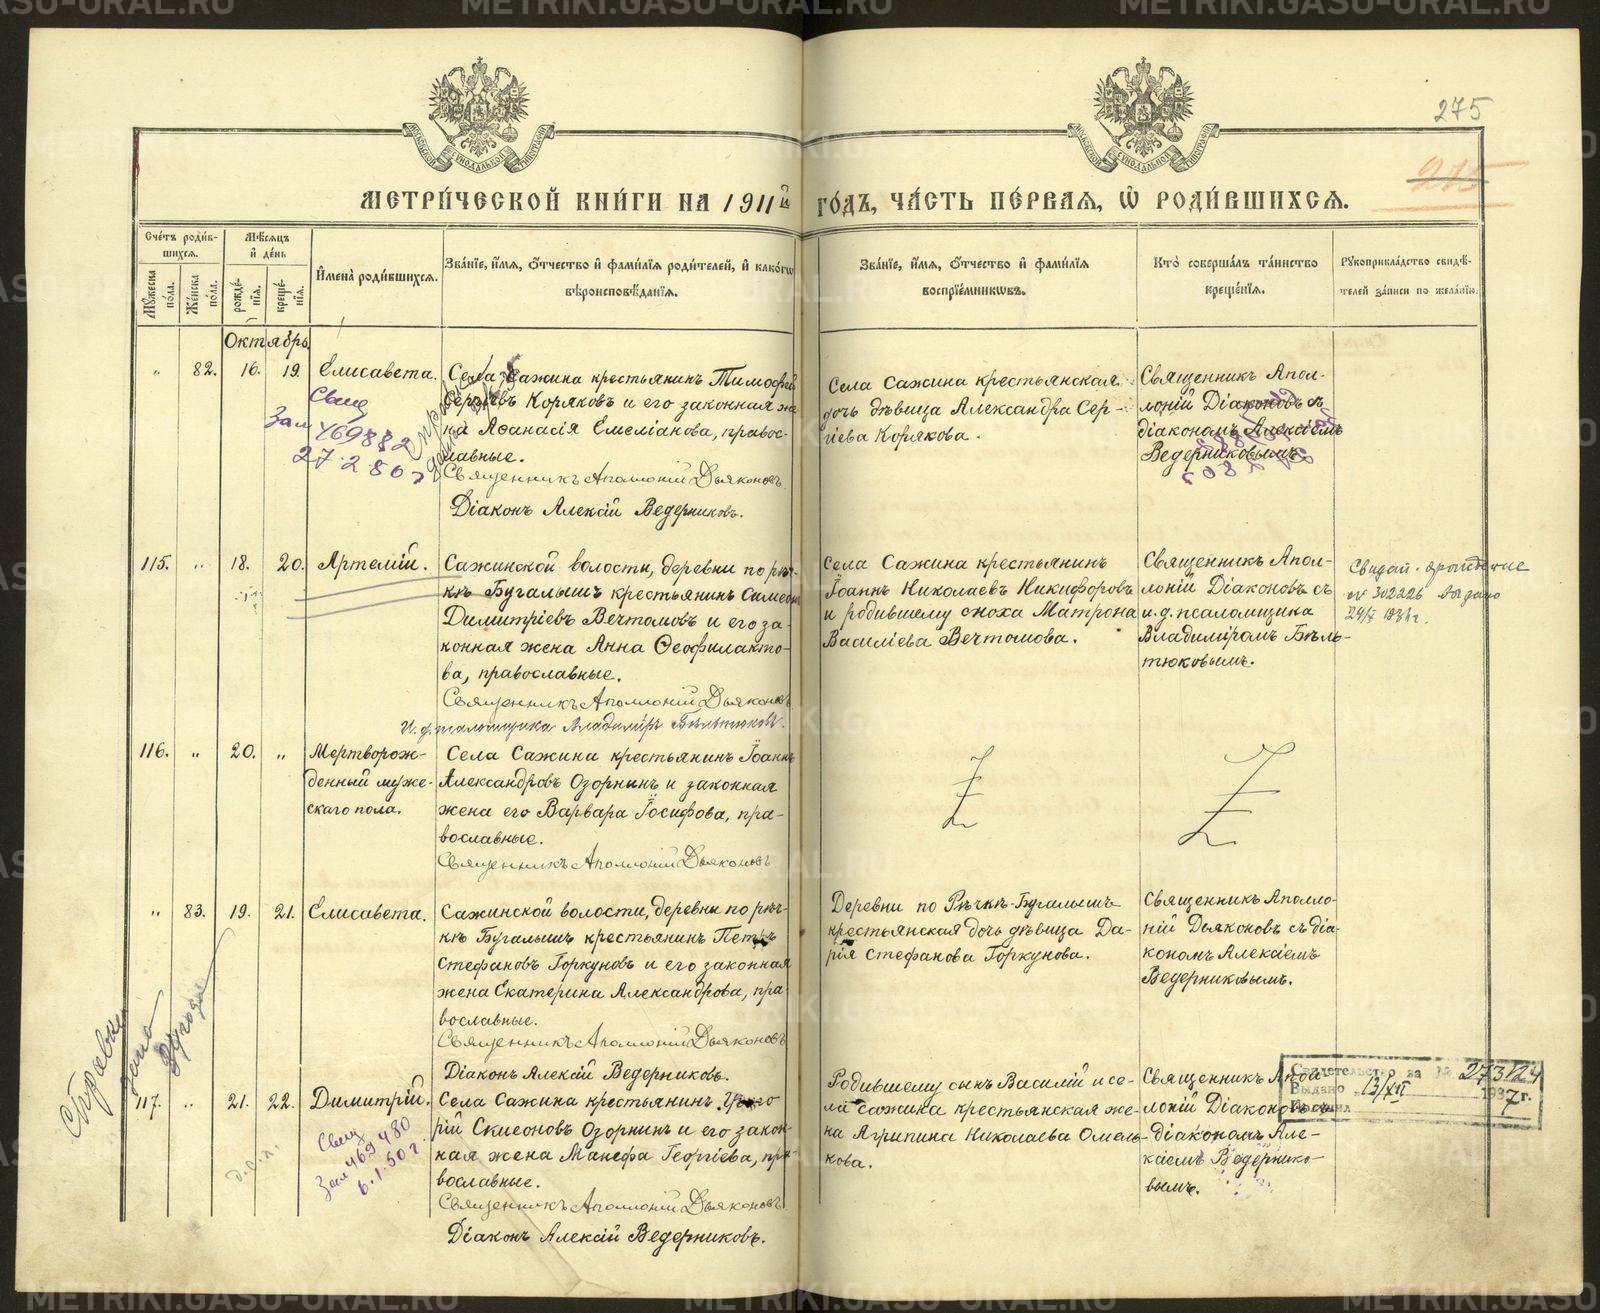 METRIKI.GASO-URAL.RU
275
МОСКОВСКОЙ СѴНОДАЛЬНОЙ ТИПОГРАФІИ
МОСКОВСКОЙ СѴНОДАЛЬНОЙ ТИПОГРАФІИ
215
МЕТРИ́ЧЕСКОЙ КНИ́ГИ НА 1911й ГО́ДЪ, ЧА́СТЬ ПЕ́РВАЯ, Ѽ РОДИ́ВШИХСЯ.
Сче́тъ роди́в-
шихся.
Мꙋ́жеска по́ла.
Же́нска по́ла.
Мѣ́сяцъ
и҆ де́нь
рожде́-
нія.
креще́-
нія.
И҆мена̀ роди́вшихся.
Зва́ніе, и҆́мя, ѻ҆́тчество и҆ фами́лія роди́телей, и҆ како́гѡ
вѣроисповѣ́данія.
Зва́ніе, и҆́мя, ѻ҆́тчество и҆ фами́лія
воспріе́мникѡвъ.
Кто̀ соверша́лъ та́инство
креще́нія.
Рꙋкоприкла́дство свидѣ́-
телей за́писи по жела́нію.
Октябрь.
" 82. 16. 19. Елисавета.
Села Сажина крестьянинъ Тимофей
Сергіевъ Коряковъ и его законная же
на Аѳанасія Емеліанова, правос-
лавные.
Священникъ Аполлоній Дьяконовъ.
Діаконъ Алексій Ведерниковъ.
Села Сажина крестьянская
дочь дѣвица Александра Сер-
гіева Корякова.
Священникъ Апол-
лоній Діаконовъ съ
діакономъ Алексіемъ
Ведерниковымъ.
Свид
469882
27.2.50г
115. " 18. 20. Артемій.
Сажинской волости, деревни по рѣч-
кѣ Бугалышъ крестьянинъ Симеонъ
Димитріевъ Вечтомовъ и его за-
конная жена Анна Ѳеофилакто-
ва, православные.
Священникъ Аполлоній Дьяконовъ
И. д. псаломщика Владиміръ Бѣльтюковъ.
Села Сажина крестьянинъ
Іоаннъ Николаевъ Никифоровъ
и родившему сноха Матрона
Василіева Вечтомова.
Священникъ Апол-
лоній Діаконовъ съ
и.д. псаломщика
Владиміромъ Бѣль-
тюковымъ.
№ 302226 выдано
116. " 20. "
Мертворож-
денный муже-
скаго пола.
Села Сажина крестьянинъ Іоаннъ
Александровъ Озорнинъ и законная
жена его Варвара Іосифова, пра-
вославные.
Священникъ Аполлоній Дьяконовъ
" 83. 19. 21. Елисавета.
Сажинской волости, деревни по рѣч-
кѣ Бугалышъ крестьянинъ Петръ
Стефановъ Горкуновъ и его законная
жена Екатерина Александрова, пра
вославные.
Священникъ Аполлоній Дьяконовъ
Діаконъ Алексій Ведерниковъ.
Деревни по Рѣчкѣ-Бугалышъ
крестьянская дочь дѣвица Да-
рія Стефанова Горкунова.
Священникъ Аполло-
ній Дьяконовъ съ діа-
кономъ Алексіемъ
Ведерниковымъ.
Справка
дана
117. " 21. 22. Димитрій.
Села Сажина крестьянинъ Григо
рій Симеоновъ Озорнинъ и его закон-
ная жена Манефа Георгіева, пра-
вославные.
Священникъ Аполлоній Дьяконовъ
Діаконъ Алексій Ведерниковъ.
Родившему сынъ Василій и се-
ла Сажина крестьянская же-
на Агрипина Николаева Омель-
кова.
Священникъ Апол
лоній Діаконовъ съ
діакономъ Але-
ксіемъ Ведернико-
вымъ.
Свид
469480
6.1.50г
Свидетельство за № 273124
Выдано 13/XII 1937г.